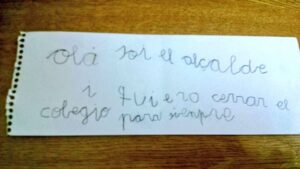 olá soi el alcalde
i quiero cerrar el
colegio para sienpre